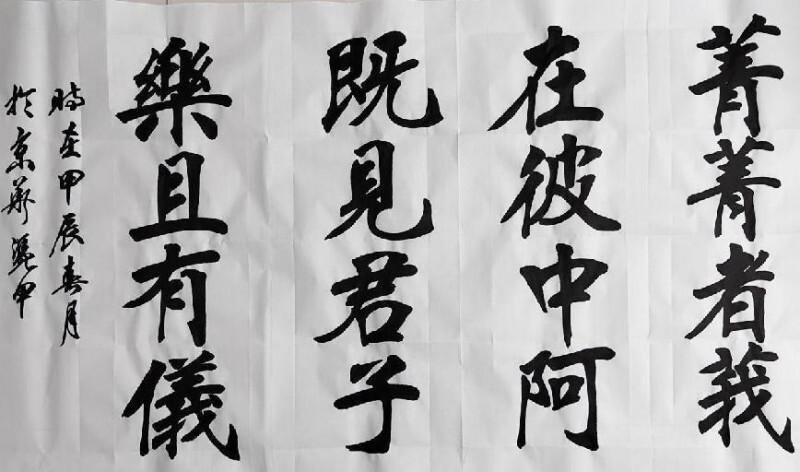 菁菁者莪
在彼中阿
既見君子
樂且有儀
時在甲辰春月
於京華選甲